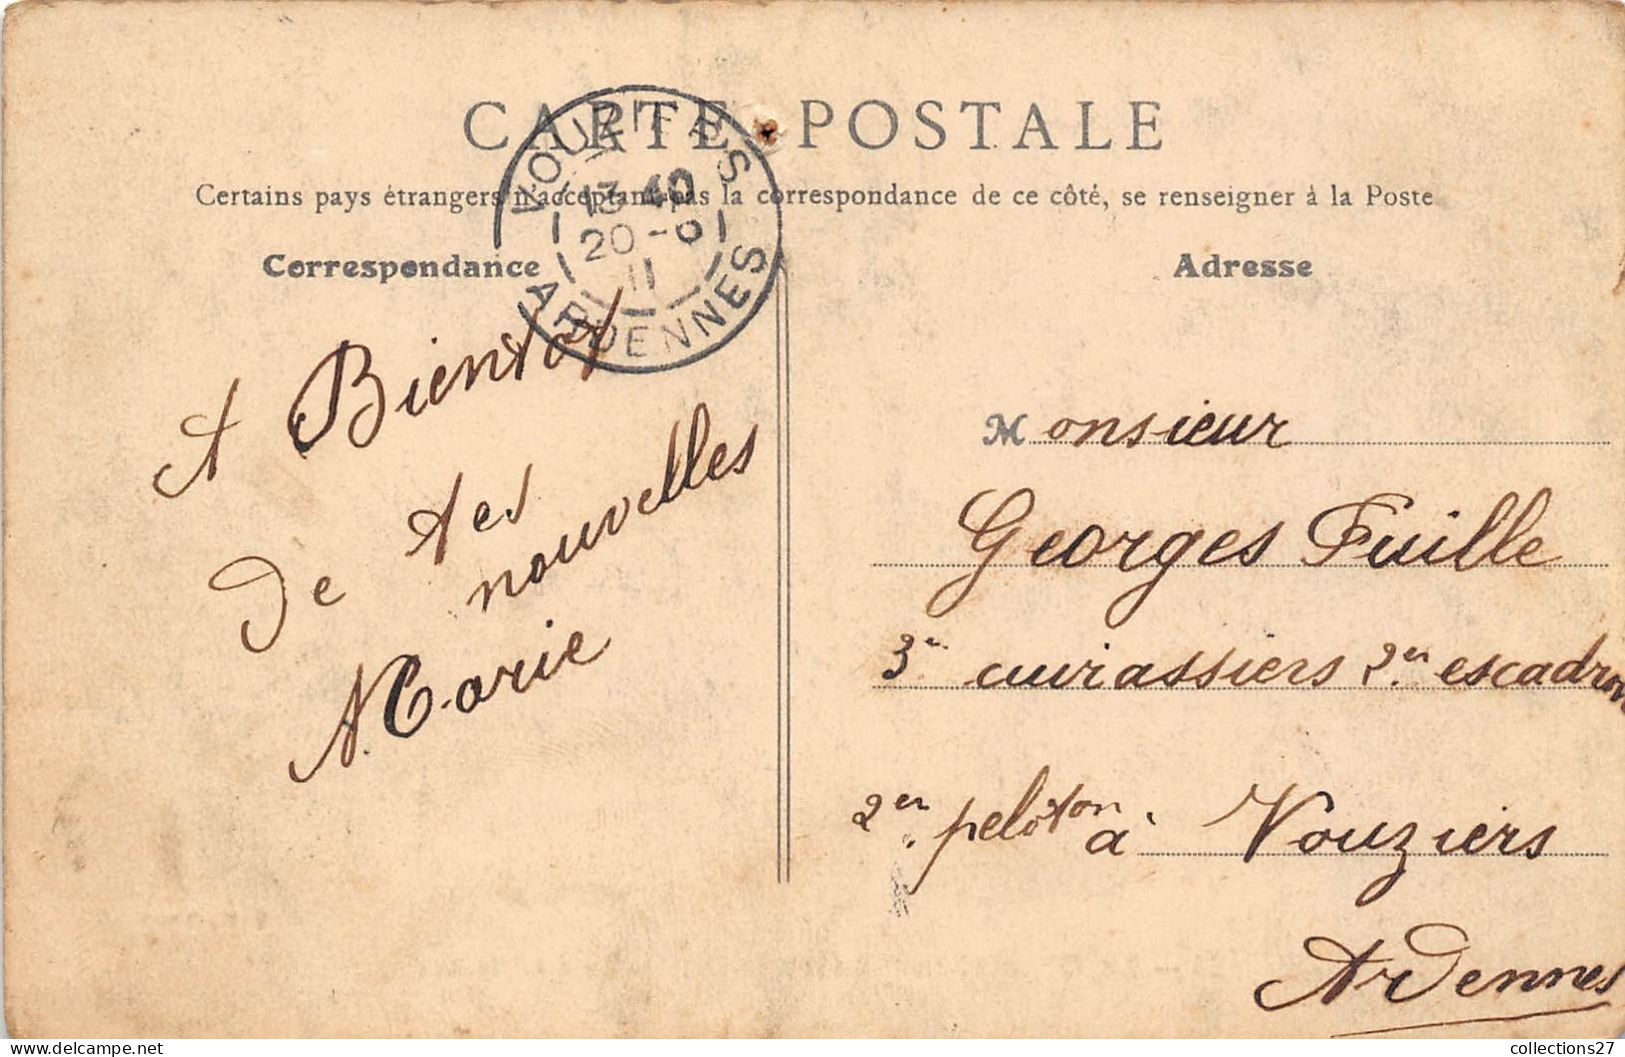 CARTE POSTALE
Certains pays étrangers n'acceptant pas la correspondance de ce côté, se renseigner à la Poste
13 40
20 -
11
ARDENNES
Correspondance
A Bientot
de tes
nouvelles
Marie
Adresse
Monsieur
Georges Fuille
3e cuirassiers 2er escadron
2er peloton à Vouziers
Ardennes
collections27